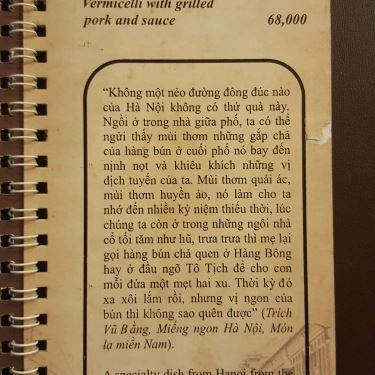 Vermicelli with grilled
pork and sauce 68,000
“Không một nẻo đường đông đúc nào
của Hà Nội không có thứ quà này.
Ngồi ở trong nhà giữa phố, ta có thể
ngửi thấy mùi thơm những gắp chả
của hàng bún ở cuối phố nó bay đến
nịnh nọt và khiêu khích những vị
dịch tuyến của ta. Mùi thơm quái ác,
mùi thơm huyền ảo, nó làm cho ta
nhớ đến nhiều kỳ niệm thiếu thời, lúc
chúng ta còn ở trong những ngôi nhà
cổ tối tăm như hũ, trưa trưa thì mẹ lại
gọi hàng bún chả quen ở Hàng Bông
hay ở đầu ngõ Tô Tịch để cho con
mỗi đứa một mẹt hai xu. Thời kỳ đó
xa xôi lắm rồi, nhưng vị ngon của
bún thì không sao quên được” (Trích
Vũ Bằng, Miếng ngon Hà Nội, Món
lạ miền Nam).
A specialty dish from Hanoi from the